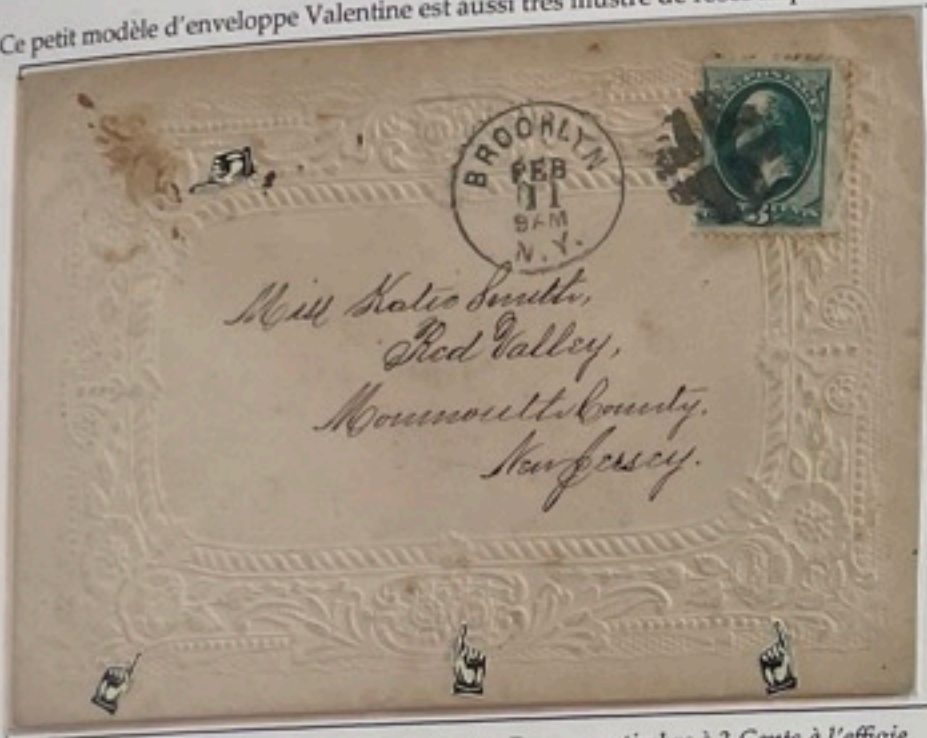 Ce petit modèle d'enveloppe Valentine est aussi très illustré de
BROOKLYN
FEB
11
9 AM
N.Y.
POSTAGE
3
Miss Katie Smith,
Red Valley,
Monmouth County,
New Jersey.
à l'effigie